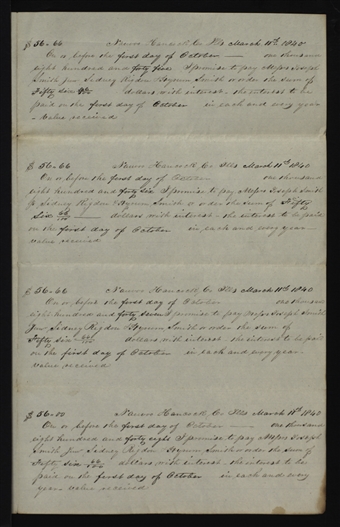 $56-66 Nauvoo Hancock Co Ills March 11th 1840
On or before the first day of October — one thousand
eight hundred and forty five I promise to pay Messrs Joseph
Smith Jun Sidney Rigdon Hyrum Smith or order the sum of
Fifty Six 66/100 dollars with interest - the interest to be
paid on the first day of October in each and every year
- Value received
$56-66 Nauvoo Hancock Co Ills March 11th 1840
On or before the first day of October one thousand
eight hundred and forty Six I promise to pay Messrs Joseph Smith
Jr Sidney Rigdon Hyrum Smith or order the sum of Fifty
Six 66/100 dollars with interest - the interest to be paid
on the first day of October in each and every year -
value received
$56-66 Nauvoo Hancock Co Ills March 11th 1840
On or before the first day of October one thousand
eight hundred and forty Seven I promise to pay Messrs Joseph Smith
Jun Sidney Rigdon Hyrum Smith or order the sum of
Fifty Six 66/100 dollars with interest - the interest to be paid
on the first day of October in each and every year -
value received
$56- Nauvoo Hancock Co Ills March 11th 1840
On or before the first day of October — one thousand
eight hundred and forty eight I promise to pay Messrs Joseph
Smith Jun Sidney Rigdon Hyrum Smith or order the sum of
Fifty Six dollars with interest - the interest to be
paid on the first day of October in each and every
year value received